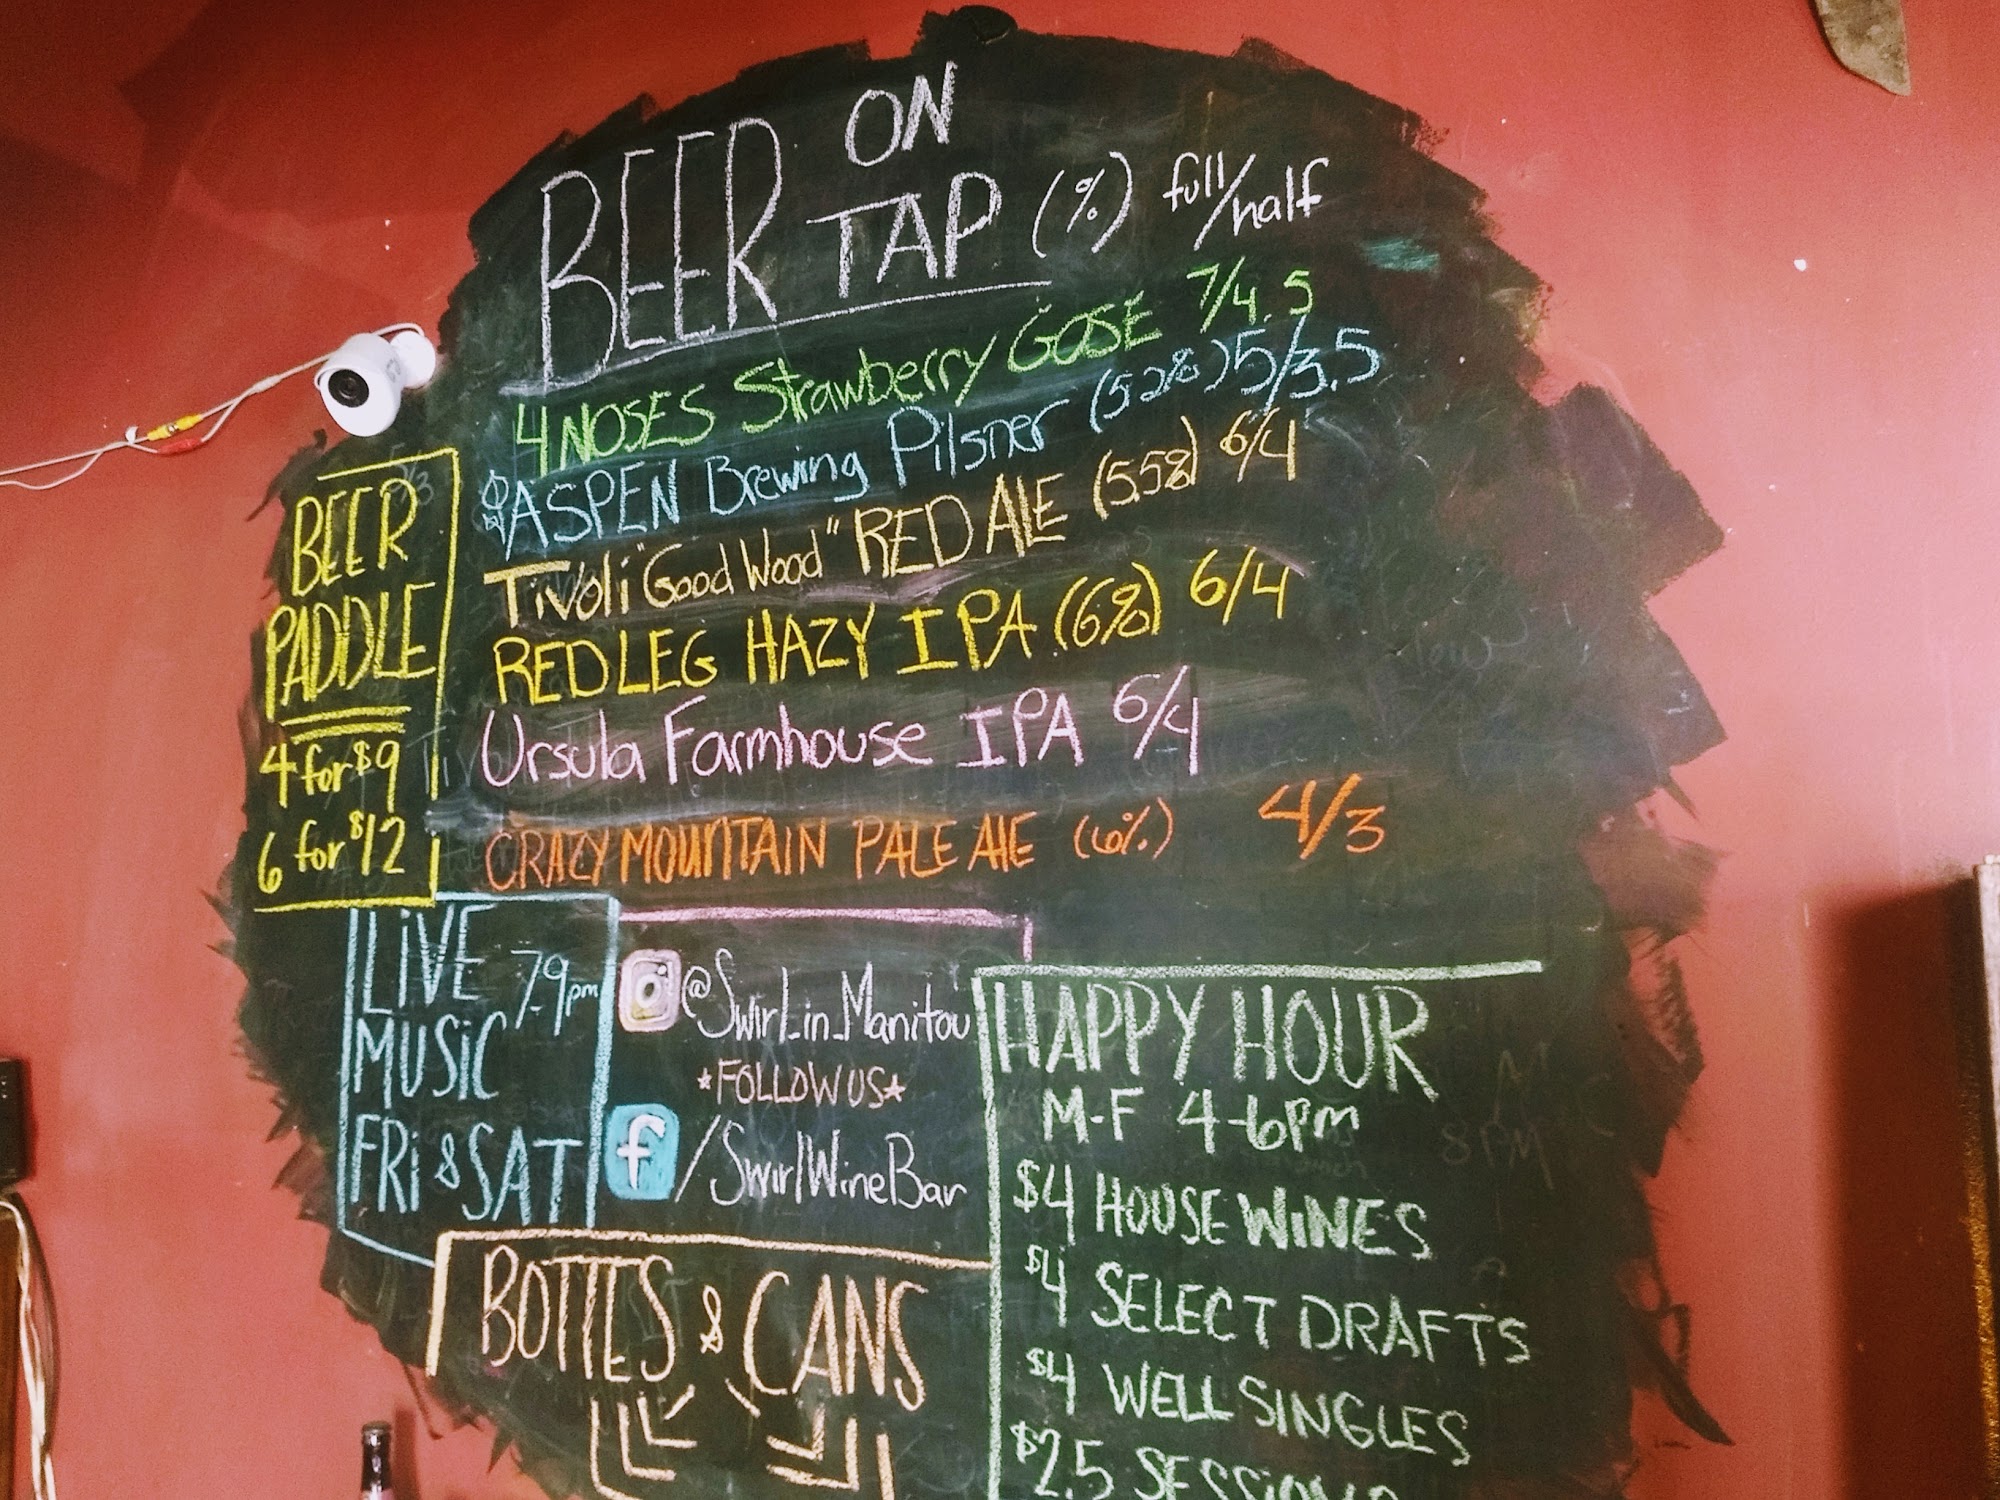 BEER ON TAP (%) full/half
4 NOSES Strawberry GOSE 7/4.5
ASPEN Brewing Pilsner (5.2%) 5/3.5
Tivoli "Good Wood" RED ALE (5.5%) 6/4
RED LEG HAZY IPA (6%) 6/4
Ursula Farmhouse IPA 6/4
CRAZY MOUNTAIN PALE ALE (6%) 4/3
BEER
PADDLE
4 for $9
6 for $12
LIVE 7-9pm
MUSIC
FRI & SAT
@Swirl_in_Manitou
*FOLLOW US*
f /SwirlWineBar
BOTTLES & CANS
HAPPY HOUR
M-F 4-6pm
$4 HOUSE WINES
$4 SELECT DRAFTS
$4 WELL SINGLES
$2.5 SESSIONS